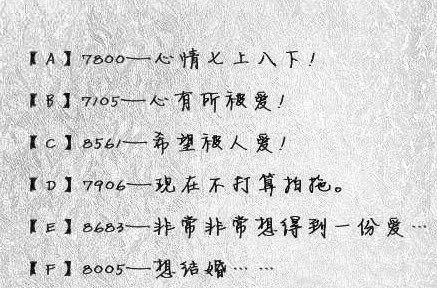 【A】7800—心情七上八下!
【B】7105—心有所被爱!
【C】8561—希望被人爱!
【D】7906—现在不打算拍拖。
【E】8683—非常非常想得到一份爱…
【F】8005—想结婚……